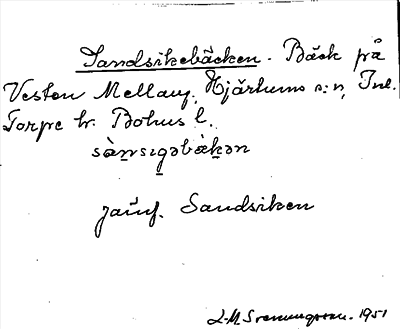 Sandsikebäcken. Bäck på
Veston Mellang. Hjärtums s:n, Inl.
Torpe hr. Bohus l.
sàn̲sıgəbàḵən
jämf. Sandsiken
1951